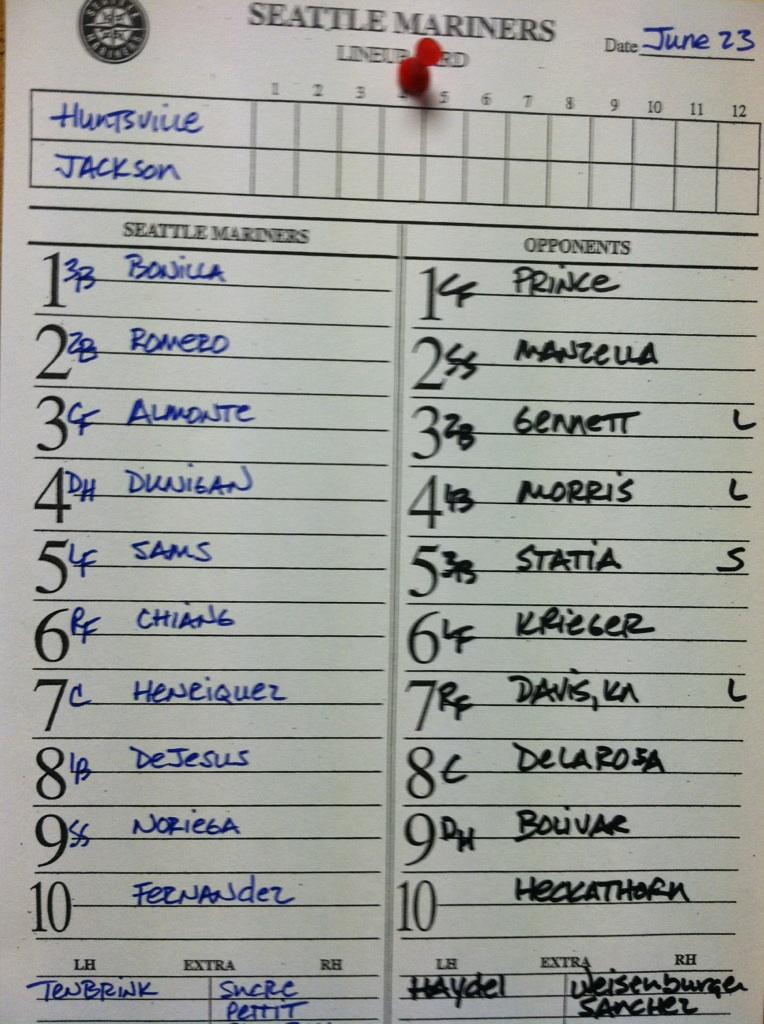 SEATTLE MARINERS
Date June 23
1 2 3 5 6 7 8 9 10 11 12
Huntsville
JACKson
SEATTLE MARINERS OPPONENTS
1 3B BONILLA 1 CF PRINCE
2 2B ROMERO 2 SS MANZELLA
3 CF ALMONTE 3 2B GENNETT L
4 DH DUNIGAN 4 1B MORRIS L
5 LF SAMS 5 3B STATIA S
6 RF CHIANG 6 LF KRIEGER
7 C HENRIQUEZ 7 RF DAVIS, KN L
8 1B DeJesus 8 C DELAROSA
9 SS NORIEGA 9 DH BOLIVAR
10 FERNANdez 10 HECKATHORN
LH EXTRA RH LH EXTRA RH
TENBRINK SUCRE HAYdel Weisenburger
PETTIT SANCHEZ